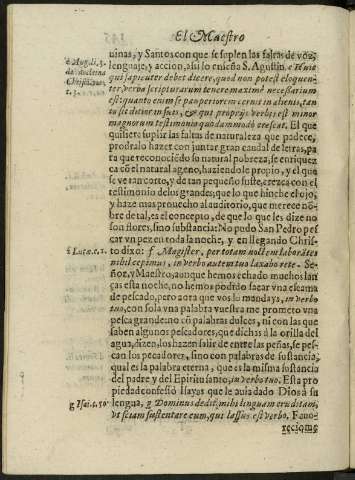 El Maestro
uinas, y Santos con que se suplen las faltas de voz,
lenguaje, y accion, asi lo enseña S. Agustin. e Huic
e Aug. li. 3.
de doctrina
Christi. cap.
5.
qui sapienter debet dicere, quod non potest eloquen-
ter, verba scripturarum tenere maximè necessarium
est: quanto enim se pauperiorem cernit in alienis, tan
to sic ditior in suis, & qui proprijs verbis est minor
magnorum testimonio quodammodo crescat. El que
quisiere suplir las faltas de naturaleza que padece,
prodralo hazer con juntar gran caudal de letras, pa
ra que reconociẽdo su natural pobreza, se enriquez
ca cõ el natural ageno, haziendole propio, y el que
se ve tan corto, y de tan pequeño fuste, crezca con el
testimonio de los grandes; que lo que hinche el ojo,
y haze mas prouecho al auditorio, que merece nõ-
bre de tal, es el concepto, de que lo que les dize no
son flores, sino substancia: No pudo San Pedro pes
car vn pez en toda la noche, y en llegando Chris-
to dixo: f Magister, per totam noctem laborãtes
f Lucæ. c. 5.
nihil cepimus, in verbo autem tuo laxabo rete. Se-
ñor, y Maestro, aunque hemos echado muchos lan
ças esta noche, no hemos podido sacar vna escama
de pescado, pero aora que vos lo mandays, in verbo
tuo, con sola vna palabra vuestra me prometo vna
pesca grande: no cõ palabras dulces, ni con las que
saben algunos pescadores, que dichas à la orilla del
agua, dizen, los hazen salir de entre las peñas, se pes-
can los pecadores, sino con palabras de sustancia,
qual es la palabra eterna, que es la misma sustancia
del padre y del Espiritu santo, in verbo tuo. Esta pro
piedad confesò Isayas que le auia dado Dios à su
lengua, g Dominus dedit mihi linguam eruditam,
g Isai. c. 50.
vt sciam sustentare eum, qui lassus est verbo. Fauo-
recione